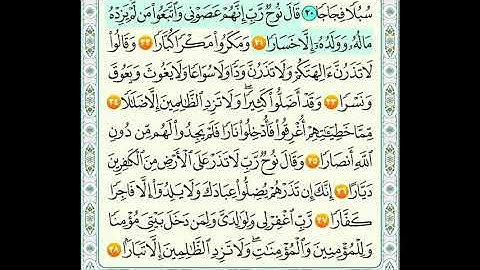 سُبُلًا فِجَاجًا ٢٠ قَالَ نُوحٌ رَّبِّ إِنَّهُمْ عَصَوْنِي وَاتَّبَعُوا مَن لَّمْ يَزِدْهُ
مَالُهُ وَوَلَدُهُ إِلَّا خَسَارًا ٢١ وَمَكَرُوا مَكْرًا كُبَّارًا ٢٢ وَقَالُوا
لَا تَذَرُنَّ آلِهَتَكُمْ وَلَا تَذَرُنَّ وَدًّا وَلَا سُوَاعًا وَلَا يَغُوثَ وَيَعُوقَ
وَنَسْرًا ٢٣ وَقَدْ أَضَلُّوا كَثِيرًا ۖ وَلَا تَزِدِ الظَّالِمِينَ إِلَّا ضَلَالًا ٢٤
مِّمَّا خَطِيئَاتِهِمْ أُغْرِقُوا فَأُدْخِلُوا نَارًا فَلَمْ يَجِدُوا لَهُم مِّن دُونِ
اللَّهِ أَنصَارًا ٢٥ وَقَالَ نُوحٌ رَّبِّ لَا تَذَرْ عَلَى الْأَرْضِ مِنَ الْكَافِرِينَ
دَيَّارًا ٢٦ إِنَّكَ إِن تَذَرْهُمْ يُضِلُّوا عِبَادَكَ وَلَا يَلِدُوا إِلَّا فَاجِرًا
كَفَّارًا ٢٧ رَّبِّ اغْفِرْ لِي وَلِوَالِدَيَّ وَلِمَن دَخَلَ بَيْتِيَ مُؤْمِنًا
وَلِلْمُؤْمِنِينَ وَالْمُؤْمِنَاتِ ۖ وَلَا تَزِدِ الظَّالِمِينَ إِلَّا تَبَارًا ٢٨